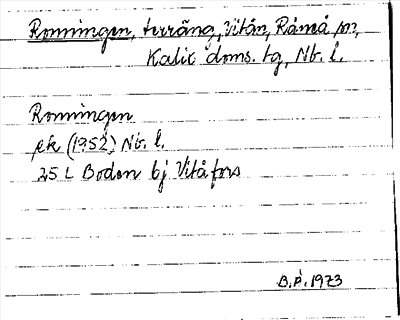 Ronningen, terräng, Vitån, Råneå sn,
Kalix doms. tg, Nb. l.
Ronningen
ek (1952) Nb. l.
25 L Boden bj Vitåfors
B.P. 1973